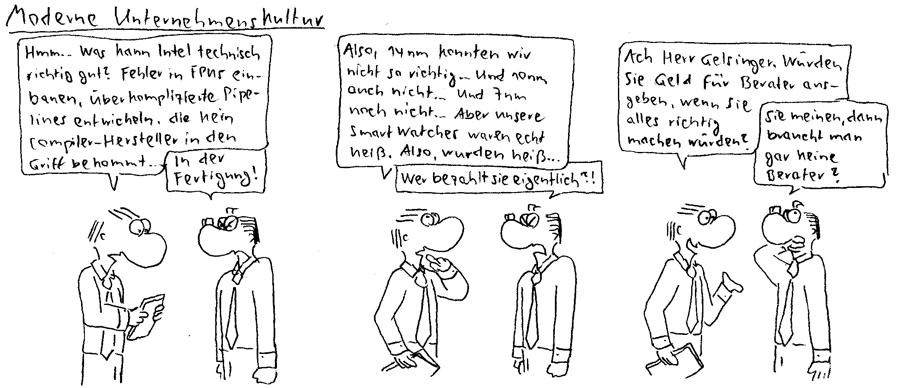 Moderne Unternehmenskultur
Hmm... Was kann Intel technisch
richtig gut? Fehler in FPUs ein-
bauen, überkomplizierte Pipe-
lines entwickeln, die kein
Compiler-Hersteller in den
Griff bekommt...
In der
Fertigung!
Also, 14nm konnten wir
nicht so richtig... Und 10nm
auch nicht... Und 7nm
noch nicht... Aber unsere
Smart Watches waren echt
heiß. Also, wurden heiß...
Wer bezahlt sie eigentlich?!
Ach Herr Gelsinger. Würden
Sie Geld für Berater aus-
geben, wenn sie
alles richtig
machen würden?
Sie meinen, dann
braucht man
gar keine
Berater?